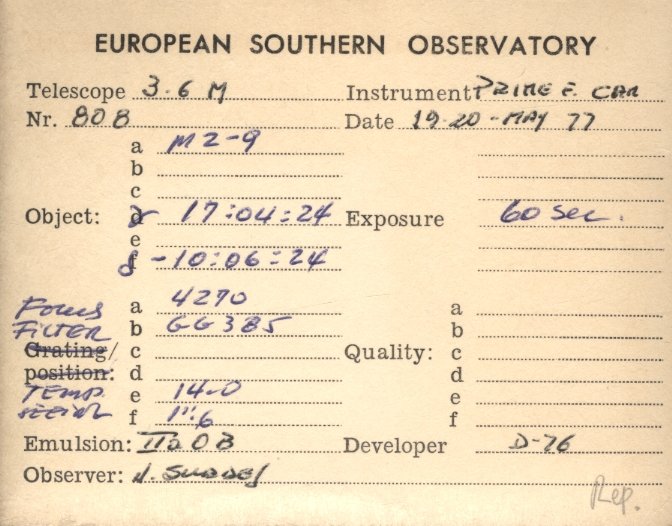 EUROPEAN SOUTHERN OBSERVATORY
Telescope 3.6 M Instrument PRIME F. CAM
Nr. 808 Date 19-20-MAY 77
a M2-9
b
c
Object: d α 17:04:24 Exposure 60 sec.
e
f δ -10:06:24
Focus a 4270 a
FILTER b GG385 b
Grating/ c Quality: c
position: d d
TEMP. e 14.0 e
SEEING f 1".6 f
Emulsion: IIa0B Developer D-76
Observer: J.
Rep.